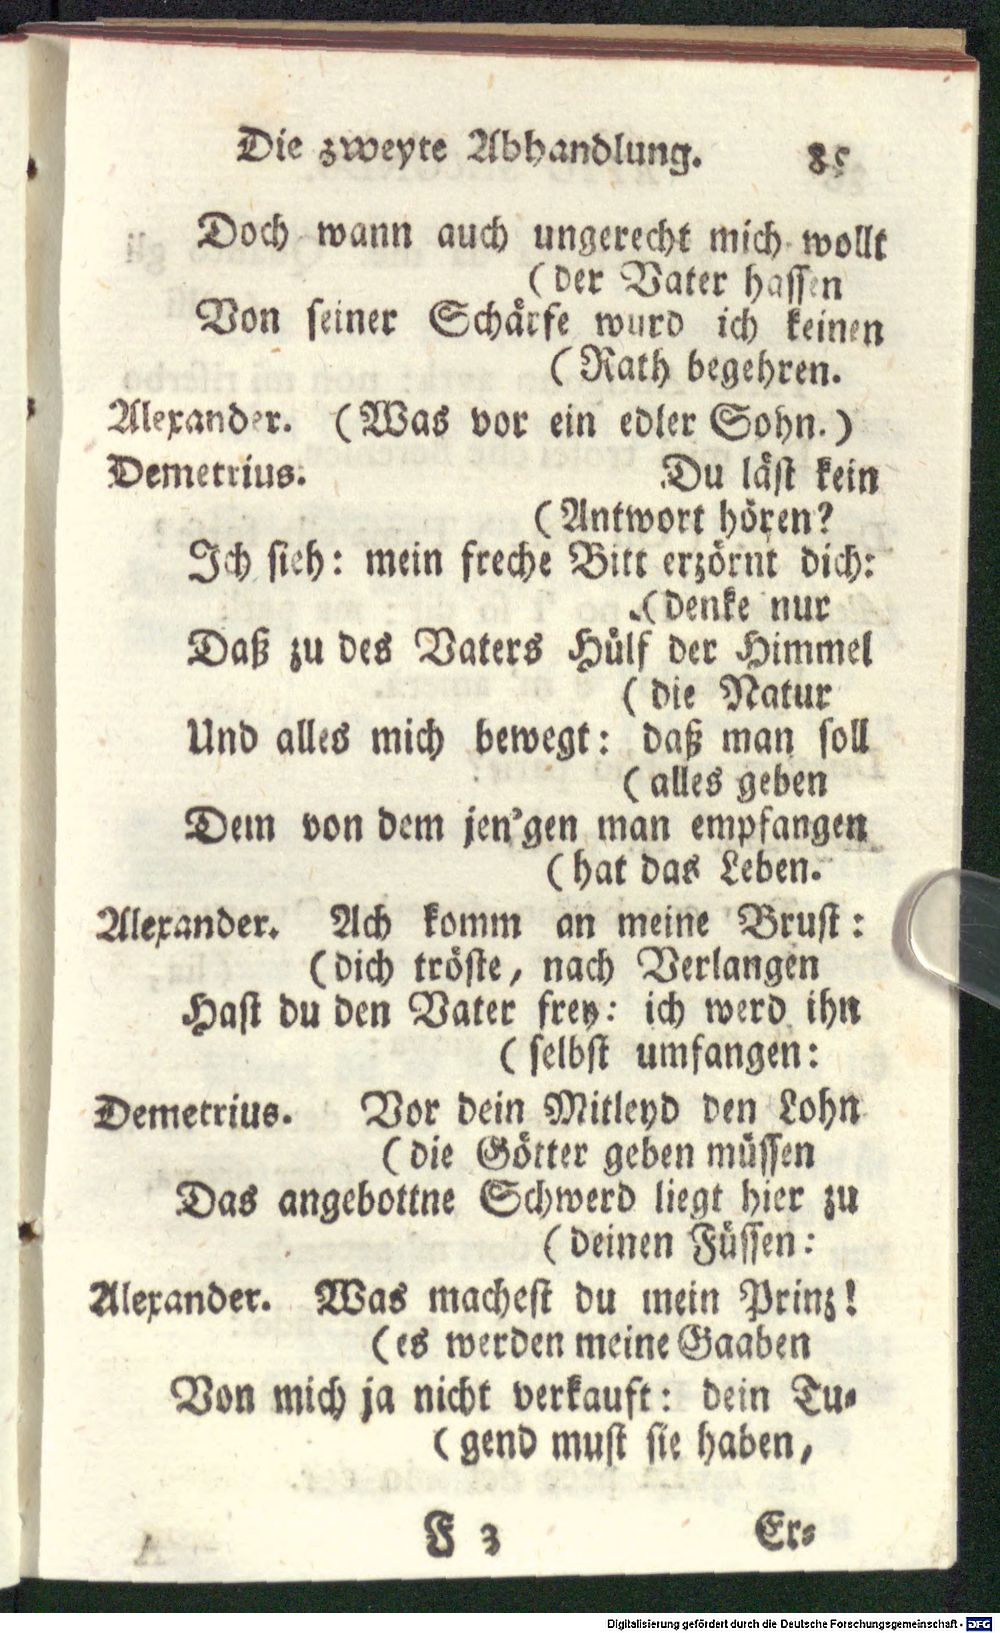 Die zweyte Abhandlung. 85
Doch wann auch ungerecht mich wollt
(der Vater hassen
Von seiner Schärfe wurd ich keinen
(Rath begehren.
Alexander. (Was vor ein edler Sohn.)
Demetrius. Du läst kein
(Antwort hören?
Ich sieh: mein freche Bitt erzörnt dich:
(denke nur
Daß zu des Vaters Hülf der Himmel
(die Natur
Und alles mich bewegt: daß man soll
(alles geben
Dem von dem jen'gen man empfangen
(hat das Leben.
Alexander. Ach komm an meine Brust:
(dich tröste, nach Verlangen
Hast du den Vater frey: ich werd ihn
(selbst umfangen:
Demetrius. Vor dein Mitleyd den Lohn
(die Götter geben müssen
Das angebottne Schwerd liegt hier zu
(deinen Füssen:
Alexander. Was machest du mein Prinz!
(es werden meine Gaaben
Von mich ja nicht verkauft: dein Tu-
(gend must sie haben,
F 3 Er-
Digitalisierung gefördert durch die Deutsche Forschungsgemeinschaft - DFG